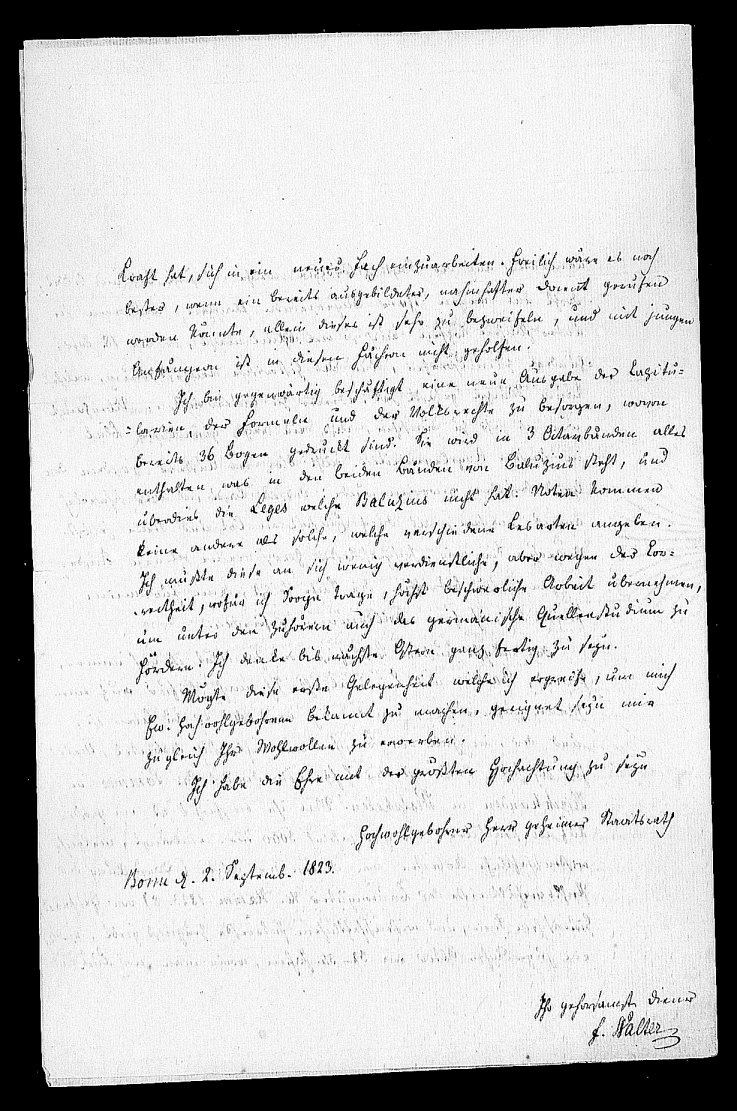 Kraft hat, sich in ein neues Fach einzuarbeiten. Freilich wäre es noch
besser, wenn ein bereits ausgebildeter, nahmhafter Docent gerufen
werden könnte, allein dieses ist sehr zu bezweifeln, und mit jungen
Anfängern ist in diesen Fächern nicht geholfen.
Ich bin gegenwärtig beschäftigt eine neue Ausgabe der Capitu-
-larien, der Formeln und der Volksrechte zu besorgen, wovon
bereits 36 Bogen gedruckt sind. Sie wird in 3 Octavbänden alles
enthalten was in den beiden Bänden von Baluzius steht, und
überdies die Leges welche Baluzius nicht hat. Noten kommen
keine andere als solche, welche verschiedene Lesarten angeben.
Ich mußte diese an sich wenig verdienstliche, aber wegen der Cor-
-rectheit, wofür ich Sorge trage, höchst beschwerliche Arbeit übernehmen,
um unter den Zuhörern auch das germanische Quellenstudium zu
fördern. Ich denke bis nächste Ostern ganz fertig zu seyn.
Möchte diese erste Gelegenheit welche ich ergreife, um mich
Ew. Hochwohlgebohren bekannt zu machen, geeignet seyn mir
zugleich Ihr Wohlwollen zu erwerben.
Ich habe die Ehre mit der größten Hochachtung zu seyn
Hochwohlgebohrner Herr geheimer Staatsrath
Bonn d. 2. Septemb. 1823.
Ihr gehorsamst. Diener
F. Walter